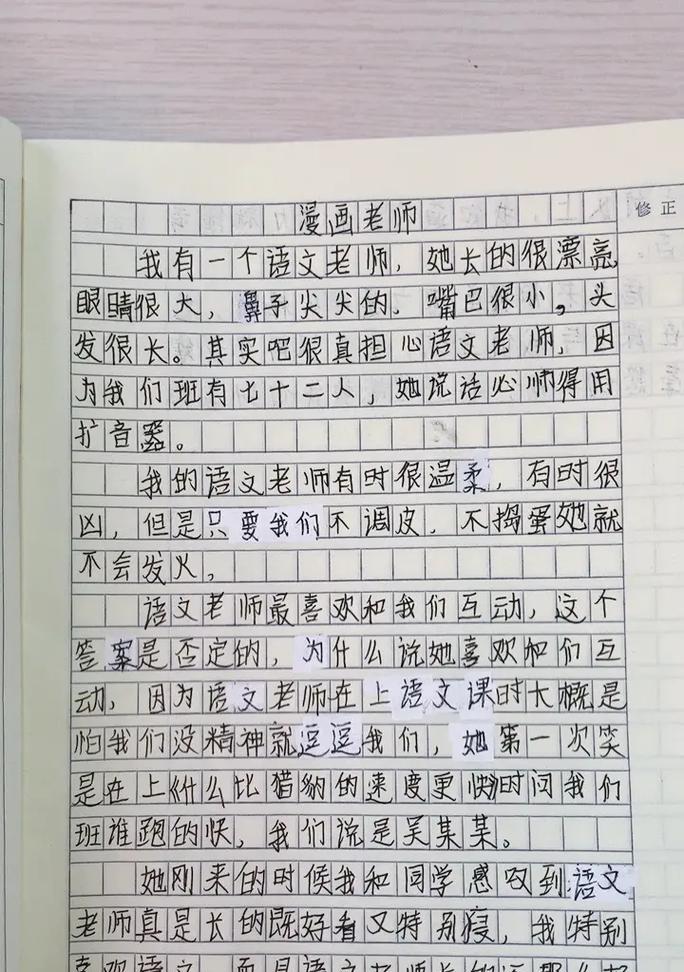 漫画老师
修正
我有一个语文老师，她长的很漂亮
眼睛很大，鼻子尖尖的，嘴巴很小，头
发很长。其实吧很真担心语文老师，因
为我们班有七十二人，她说话必师得用
扩音器。
我的语文老师有时很温柔，有时很
凶，但是只要我们不调皮，不捣蛋她就
不会发火，
语文老师最喜欢和我们互动，这个
答案是否定的，为什么说她喜欢和们互
动，因为语文老师在上语文课时大概是
怕我们没精神就逗逗我们，她第一次笑
是在上《什么比猎豹的速度更快》时问我们
班谁跑的快，我们说是吴某某。
她刚来的时候我和同学感叹到语文
老师真是长的既好看又特别瘦，我特别
喜欢语文